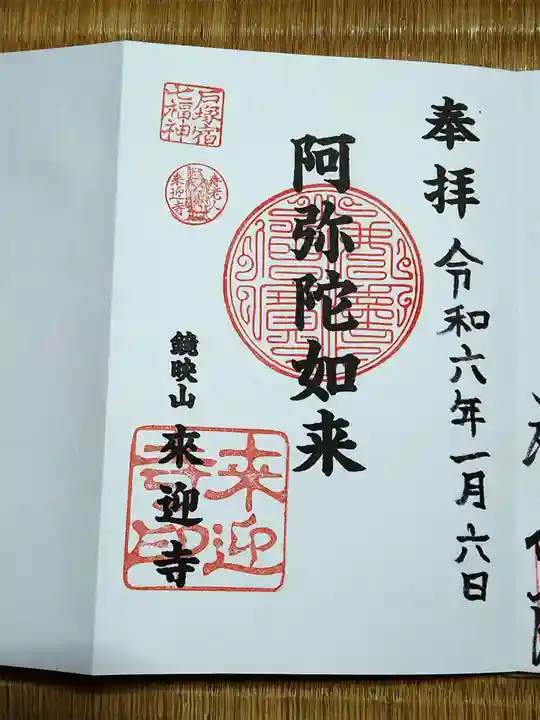 奉拝
令和六年一月六日
阿弥陀如来
戸塚宿
七福神
寿老人
来迎寺
鏡映山
來迎寺
来迎
寺印